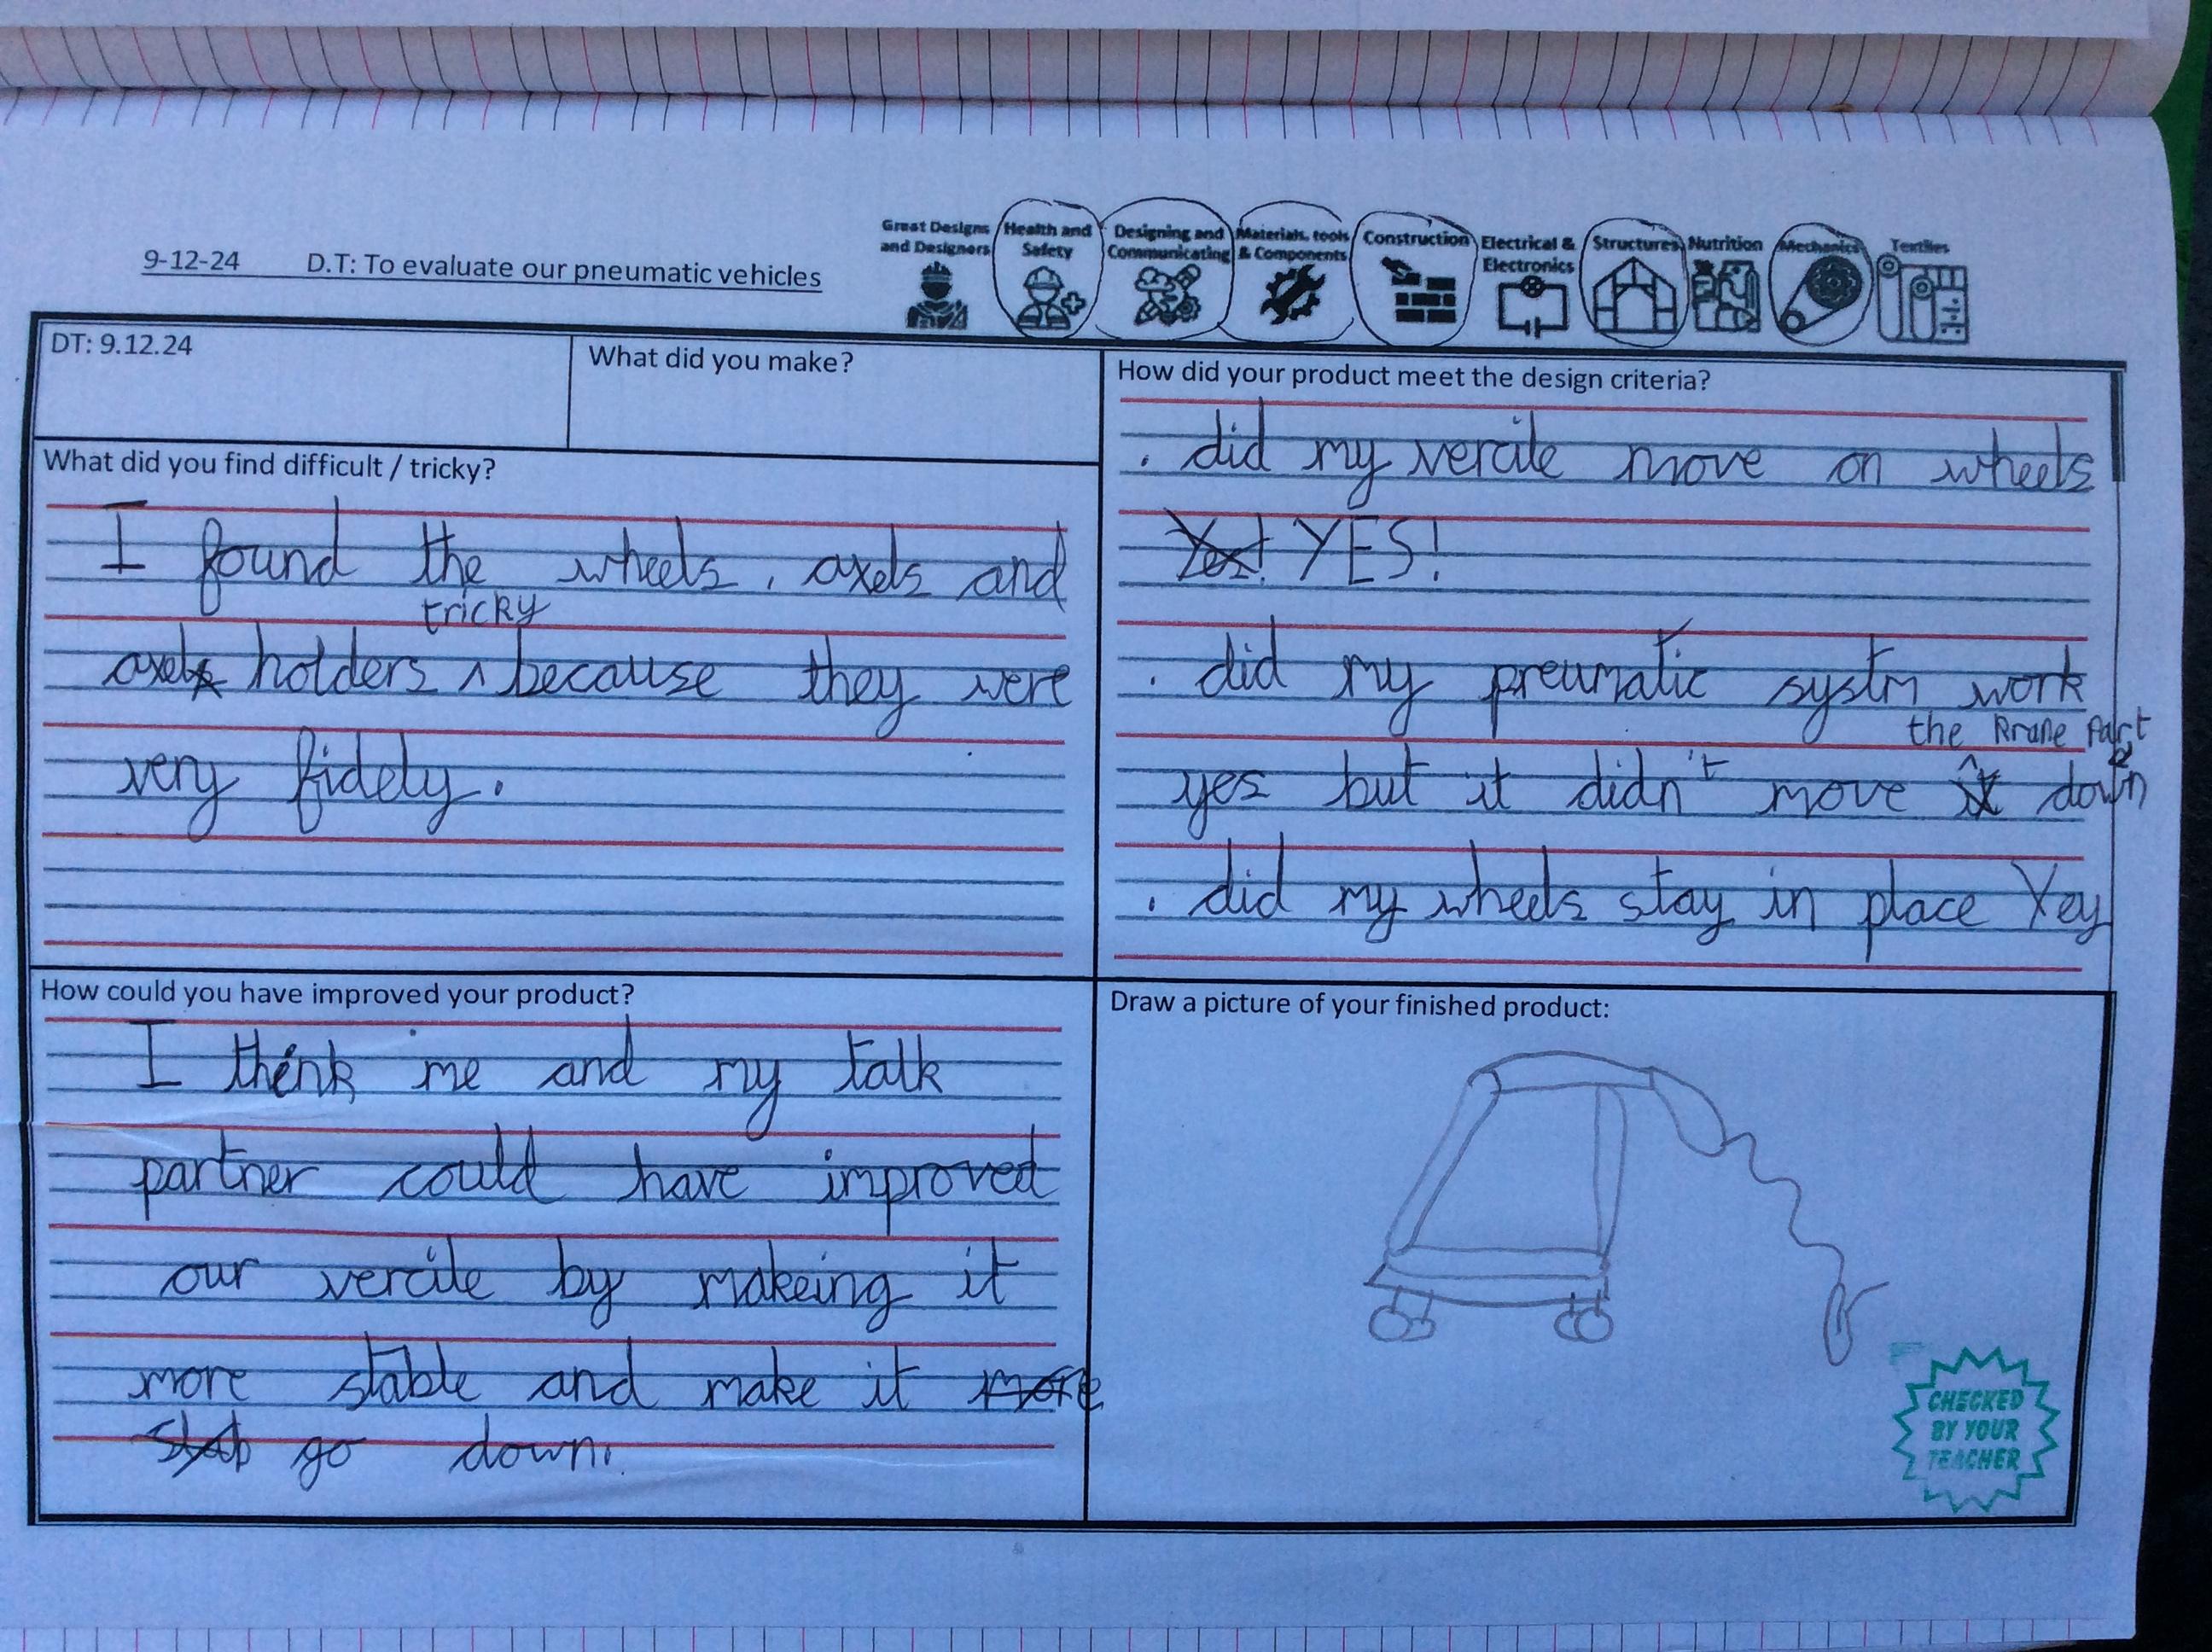 Great Designs and Designers
Health and Safety
Designing and Communicating
Materials, tools & Components
Construction
Electrical & Electronics
Structures
Nutrition
Mechanics
Textiles
9-12-24 D.T: To evaluate our pneumatic vehicles
DT: 9.12.24
What did you make?
What did you find difficult / tricky?
I found the wheels, axels and
tricky
axel holders ^ because they were
very fidely.
How did your product meet the design criteria?
. did my vercile move on wheels
Yes! YES!
. did my pneumatic systm work
the Part
yes but it didn't move it down
. did my wheels stay in place Yey
How could you have improved your product?
I think me and my talk
partner could have improved
our vercile by makeing it
more stable and make it more
stab go down.
Draw a picture of your finished product:
CHECKED
BY YOUR
TEACHER